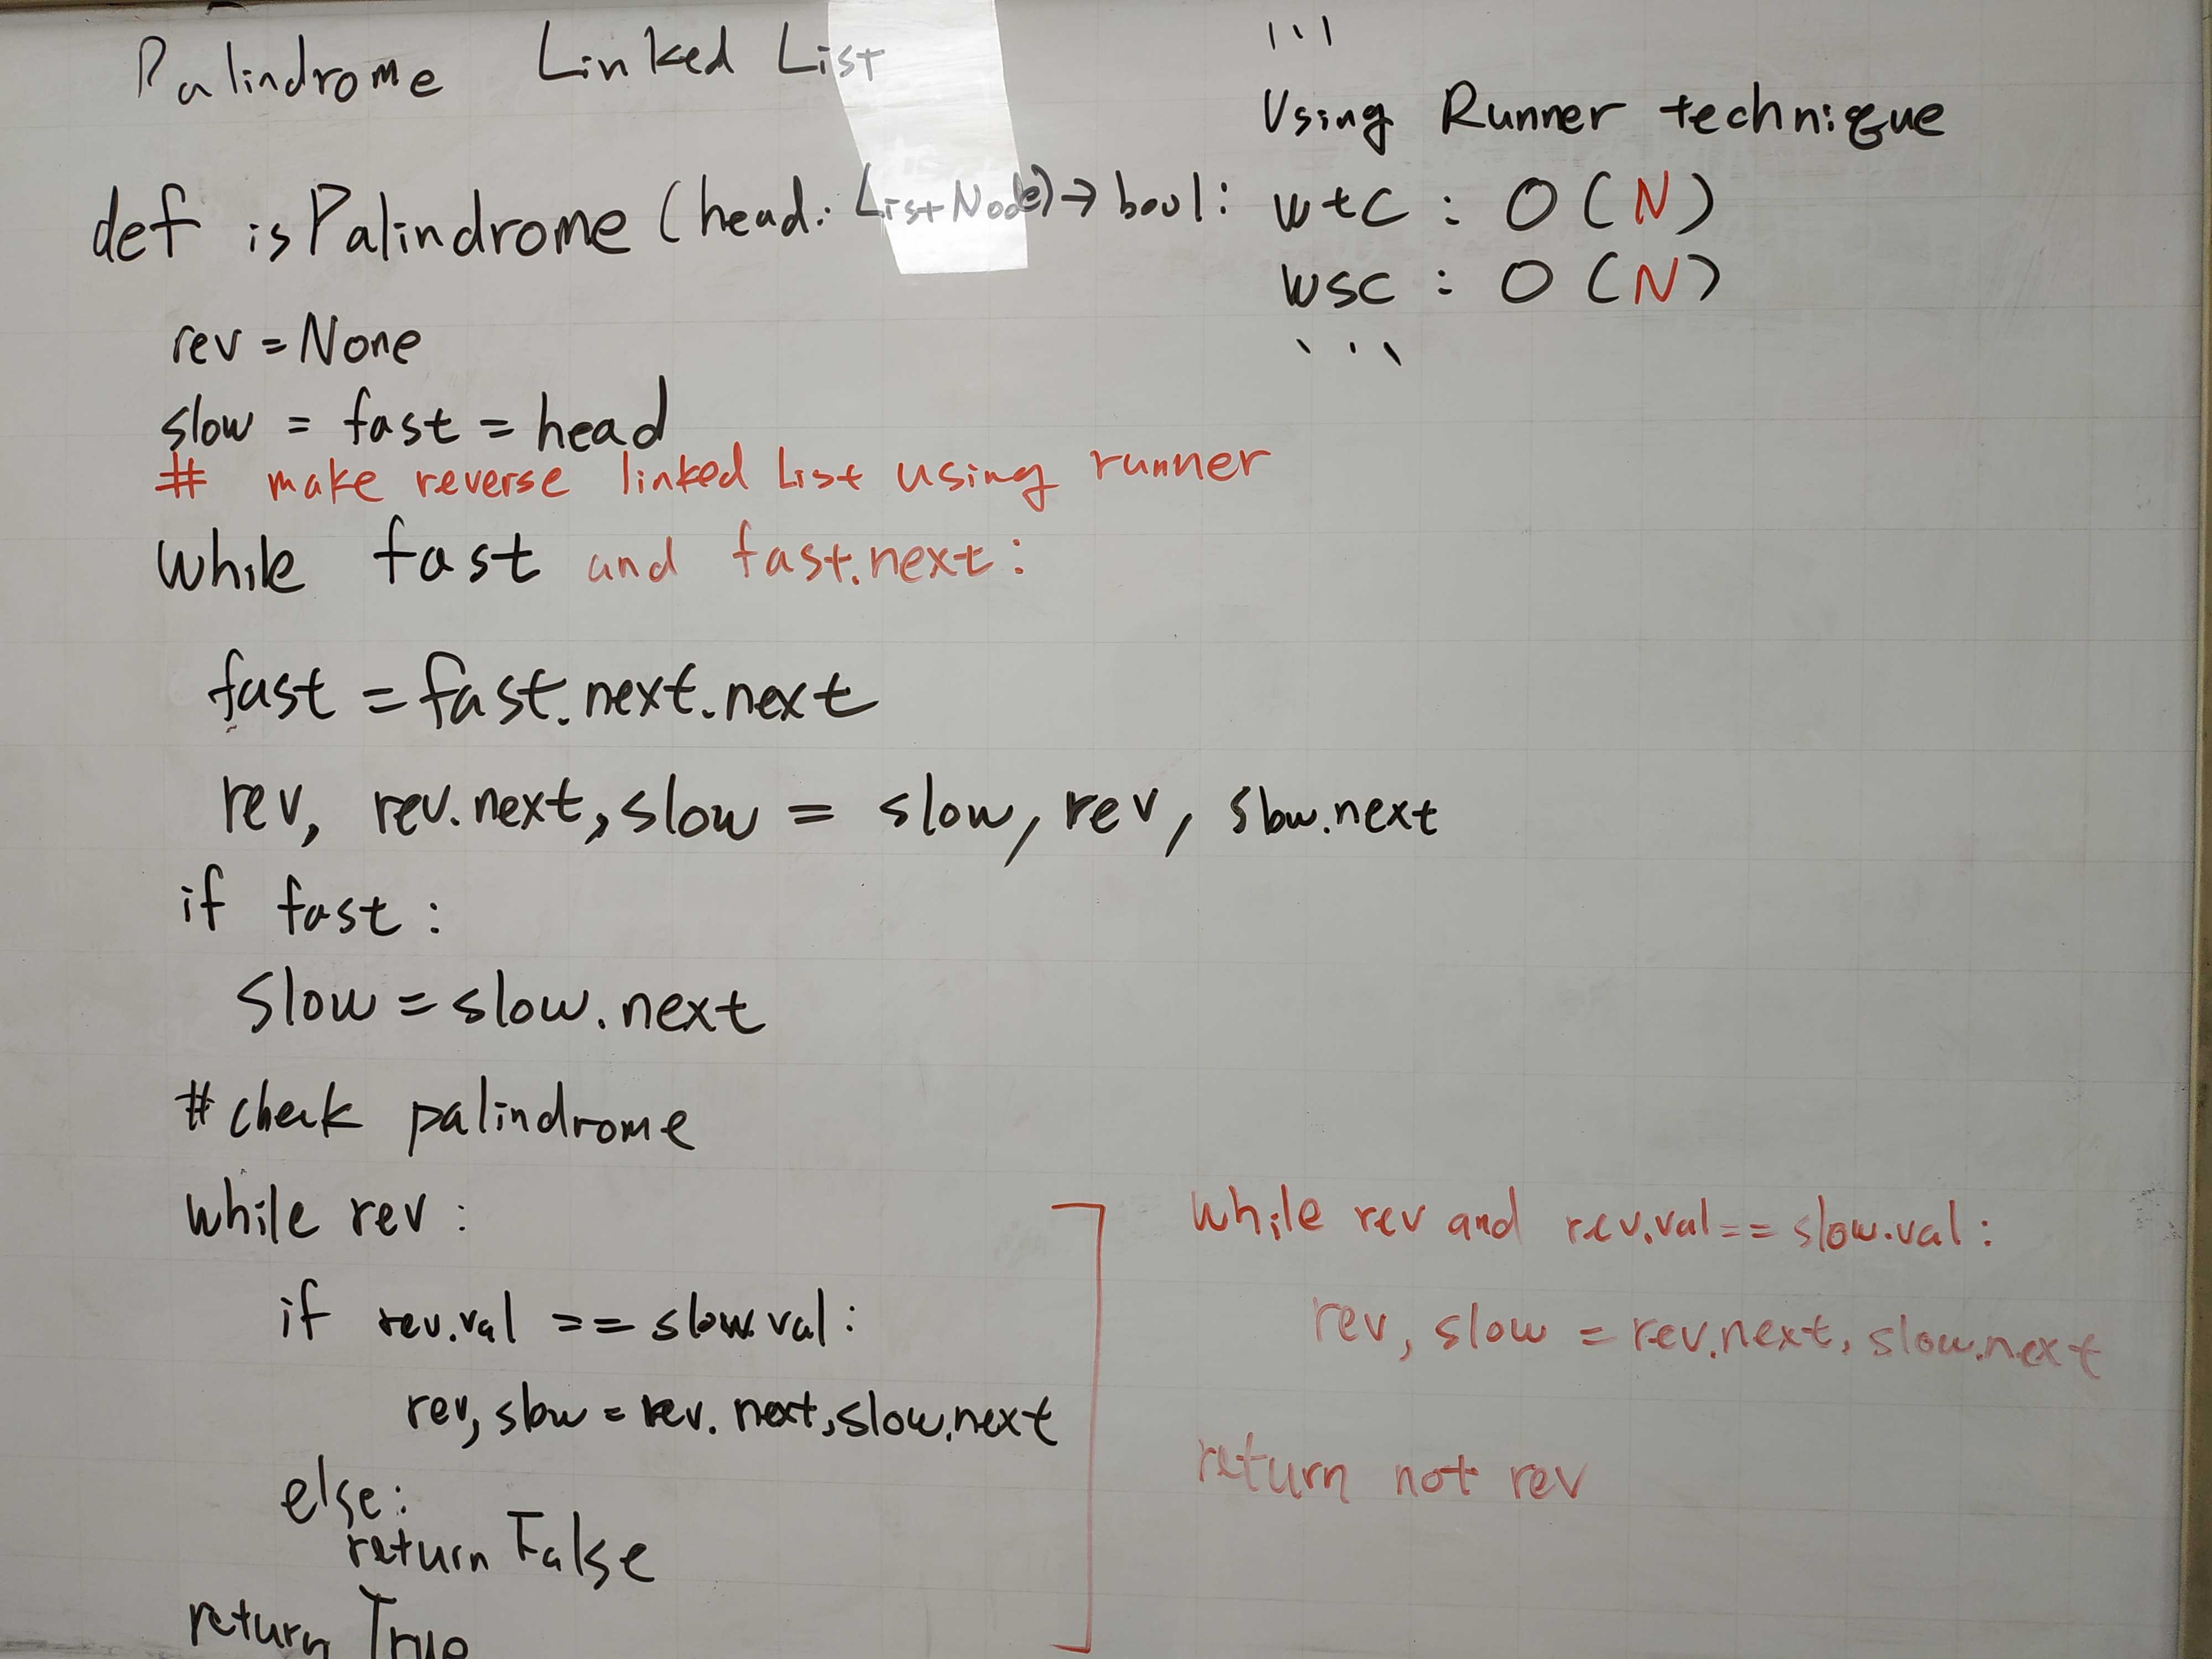 Palindrome Linked List
def isPalindrome (head: ListNode) → bool:
rev = None
slow = fast = head
# make reverse linked List using runner
while fast and fast.next:
fast = fast.next.next
rev, rev.next, slow = slow, rev, slow.next
if fast:
slow = slow.next
#check palindrome
while rev:
if rev.val == slow.val:
rev, slow = rev.next, slow.next
else:
return False
return True
'''
Using Runner technique
wtc : O (N)
wsc : O (N)
'''
while rev and rev.val == slow.val:
rev, slow = rev.next, slow.next
return not rev